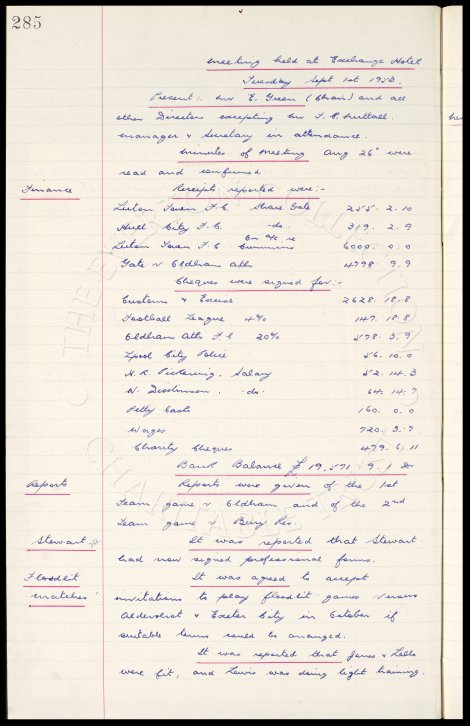 285
Meeting held at Exchange Hotel
Tuesday Sept 1st 1953.
Present:- Mr E. Green (Chair) and all
other Directors excepting Mr T. C. Nuttall.
Manager & Secretary in attendance.
Minutes of Meeting Aug 26th were
read and confirmed
Finance Receipts reported were:-
Luton Town F.C. Share Gate 255. 2. 10
Hull City F.C. -do- 319. 2. 9
Luton Town F.C. on a/c re Cummins 6000. 0. 0
Gate v Oldham Ath 4798. 9. 9
Cheques were signed for:-
Customs & Excise 2628. 18. 8
Football League 4% 147. 18. 8
Oldham Ath F.C 20% 578. 3. 9
Lpool City Police 56. 10. 0
H. R. Pickering. Salary 52. 14. 3
W. Dickinson. do. 64. 14. 7
Petty Cash 160. 0. 0
Wages 720. 3. 7
Charity Cheques 479. 6. 11
Bank Balance £ 19,571. 9. 1 Dr
Reports Reports were given of the 1st
Team game v Oldham and of the 2nd
Team game v Bury Res.
Stewart It was reported that Stewart
had now signed professional forms.
Floodlit It was agreed to accept
matches invitations to play floodlit games versus
Aldershot & Exeter City in October if
suitable terms could be arranged.
It was reported that Jones & Lello
were fit, and Lewis was doing light training.